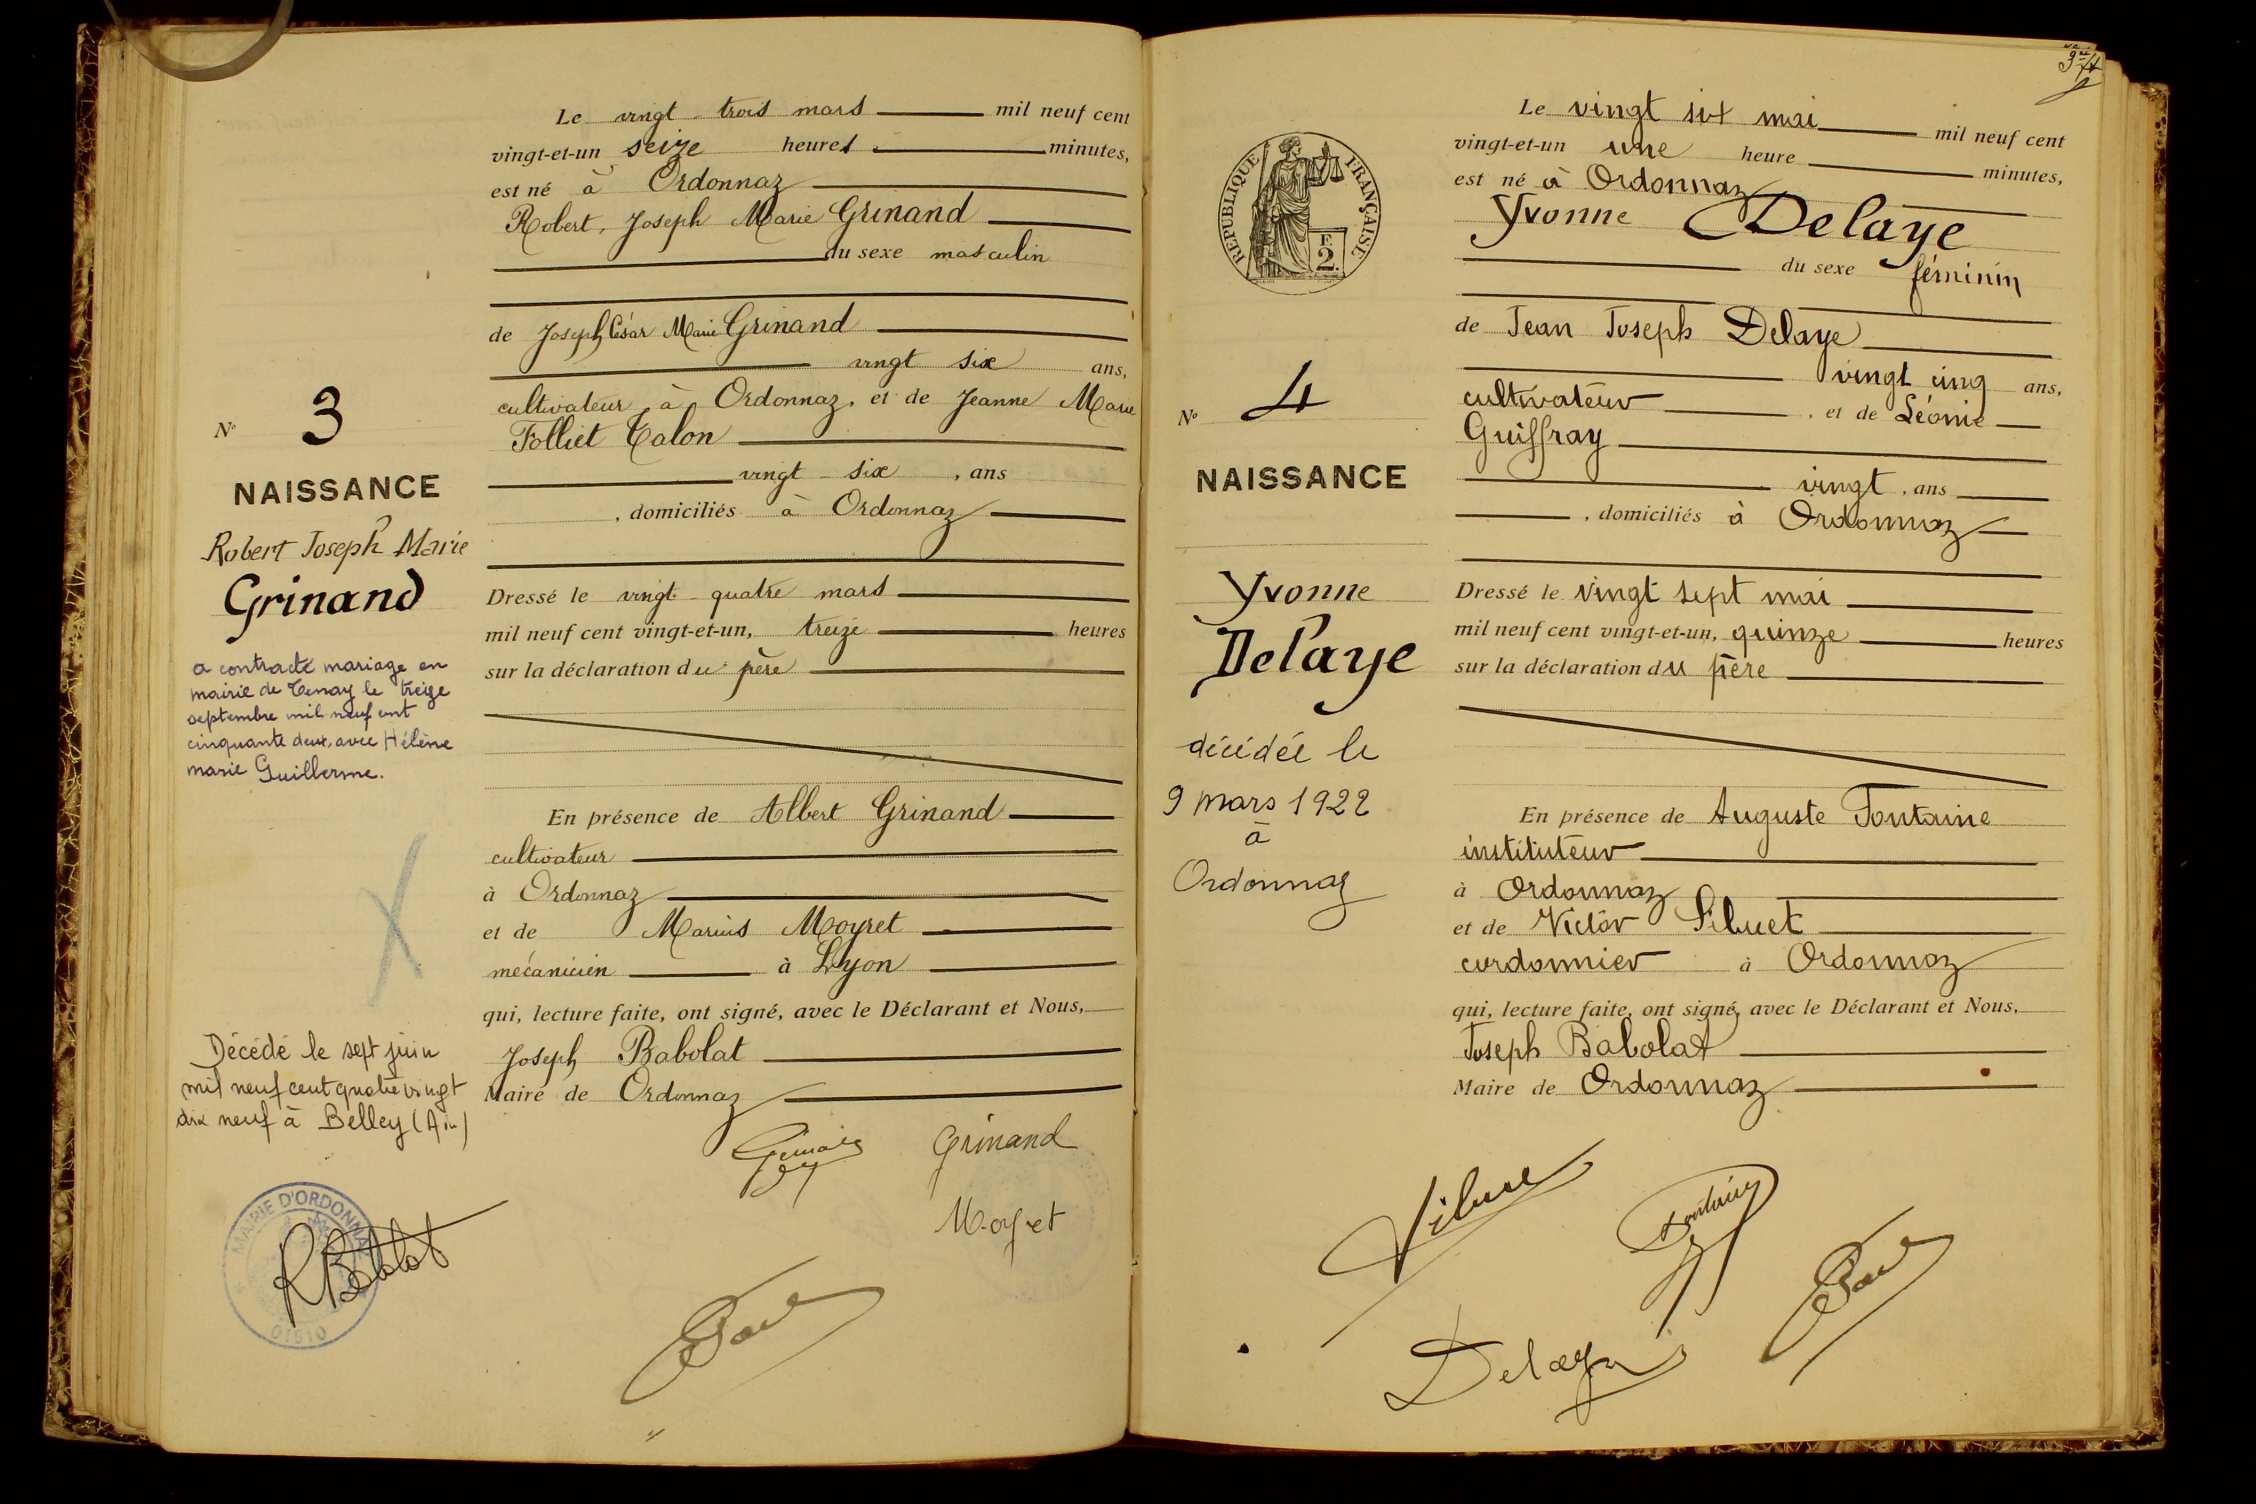 Le vingt-trois mars mil neuf cent
vingt-et-un seize heures minutes,
est né à Ordonnaz
Robert, Joseph Marie Grinand
du sexe masculin
de Joseph César Marie Grinand
vingt six ans,
cultivateur à Ordonnaz, et de Jeanne Marie
Folliet Talon
vingt-six , ans
, domiciliés à Ordonnaz
Dressé le vingt-quatre mars
mil neuf cent vingt-et-un, treize heures
sur la déclaration du père
En présence de Albert Grinand
cultivateur
à Ordonnaz
et de Marius Moyret
mécanicien à Lyon
qui, lecture faite, ont signé, avec le Déclarant et Nous,
Joseph Babolat
Maire de Ordonnaz
Grinand
Moyret
N° 3
NAISSANCE
Robert Joseph Marie
Grinand
a contracté mariage en
mairie de Tenay le treize
septembre mil neuf cent
cinquante deux, avec Hélène
marie Guillerme.
Décédé le sept juin
mil neuf cent quatre vingt
dix neuf à Belley (Ain)
MAIRIE D'ORDONNAZ
01510
RBabolat
Le vingt six mai mil neuf cent
vingt-et-un une heure minutes,
est né à Ordonnaz
Yvonne Delaye
du sexe féminin
de Jean Joseph Delaye
vingt cinq ans,
cultivateur , et de Léonie
Guiffray
vingt , ans
, domiciliés à Ordonnaz
Dressé le vingt sept mai
mil neuf cent vingt-et-un, quinze heures
sur la déclaration du père
En présence de Auguste Fontaine
instituteur
à Ordonnaz
et de Victor Sibuet
cordonnier à Ordonnaz
qui, lecture faite, ont signé, avec le Déclarant et Nous,
Joseph Babolat
Maire de Ordonnaz
Delaye
RÉPUBLIQUE FRANÇAISE
2
N° 4
NAISSANCE
Yvonne
Delaye
décédée le
9 mars 1922
à
Ordonnaz